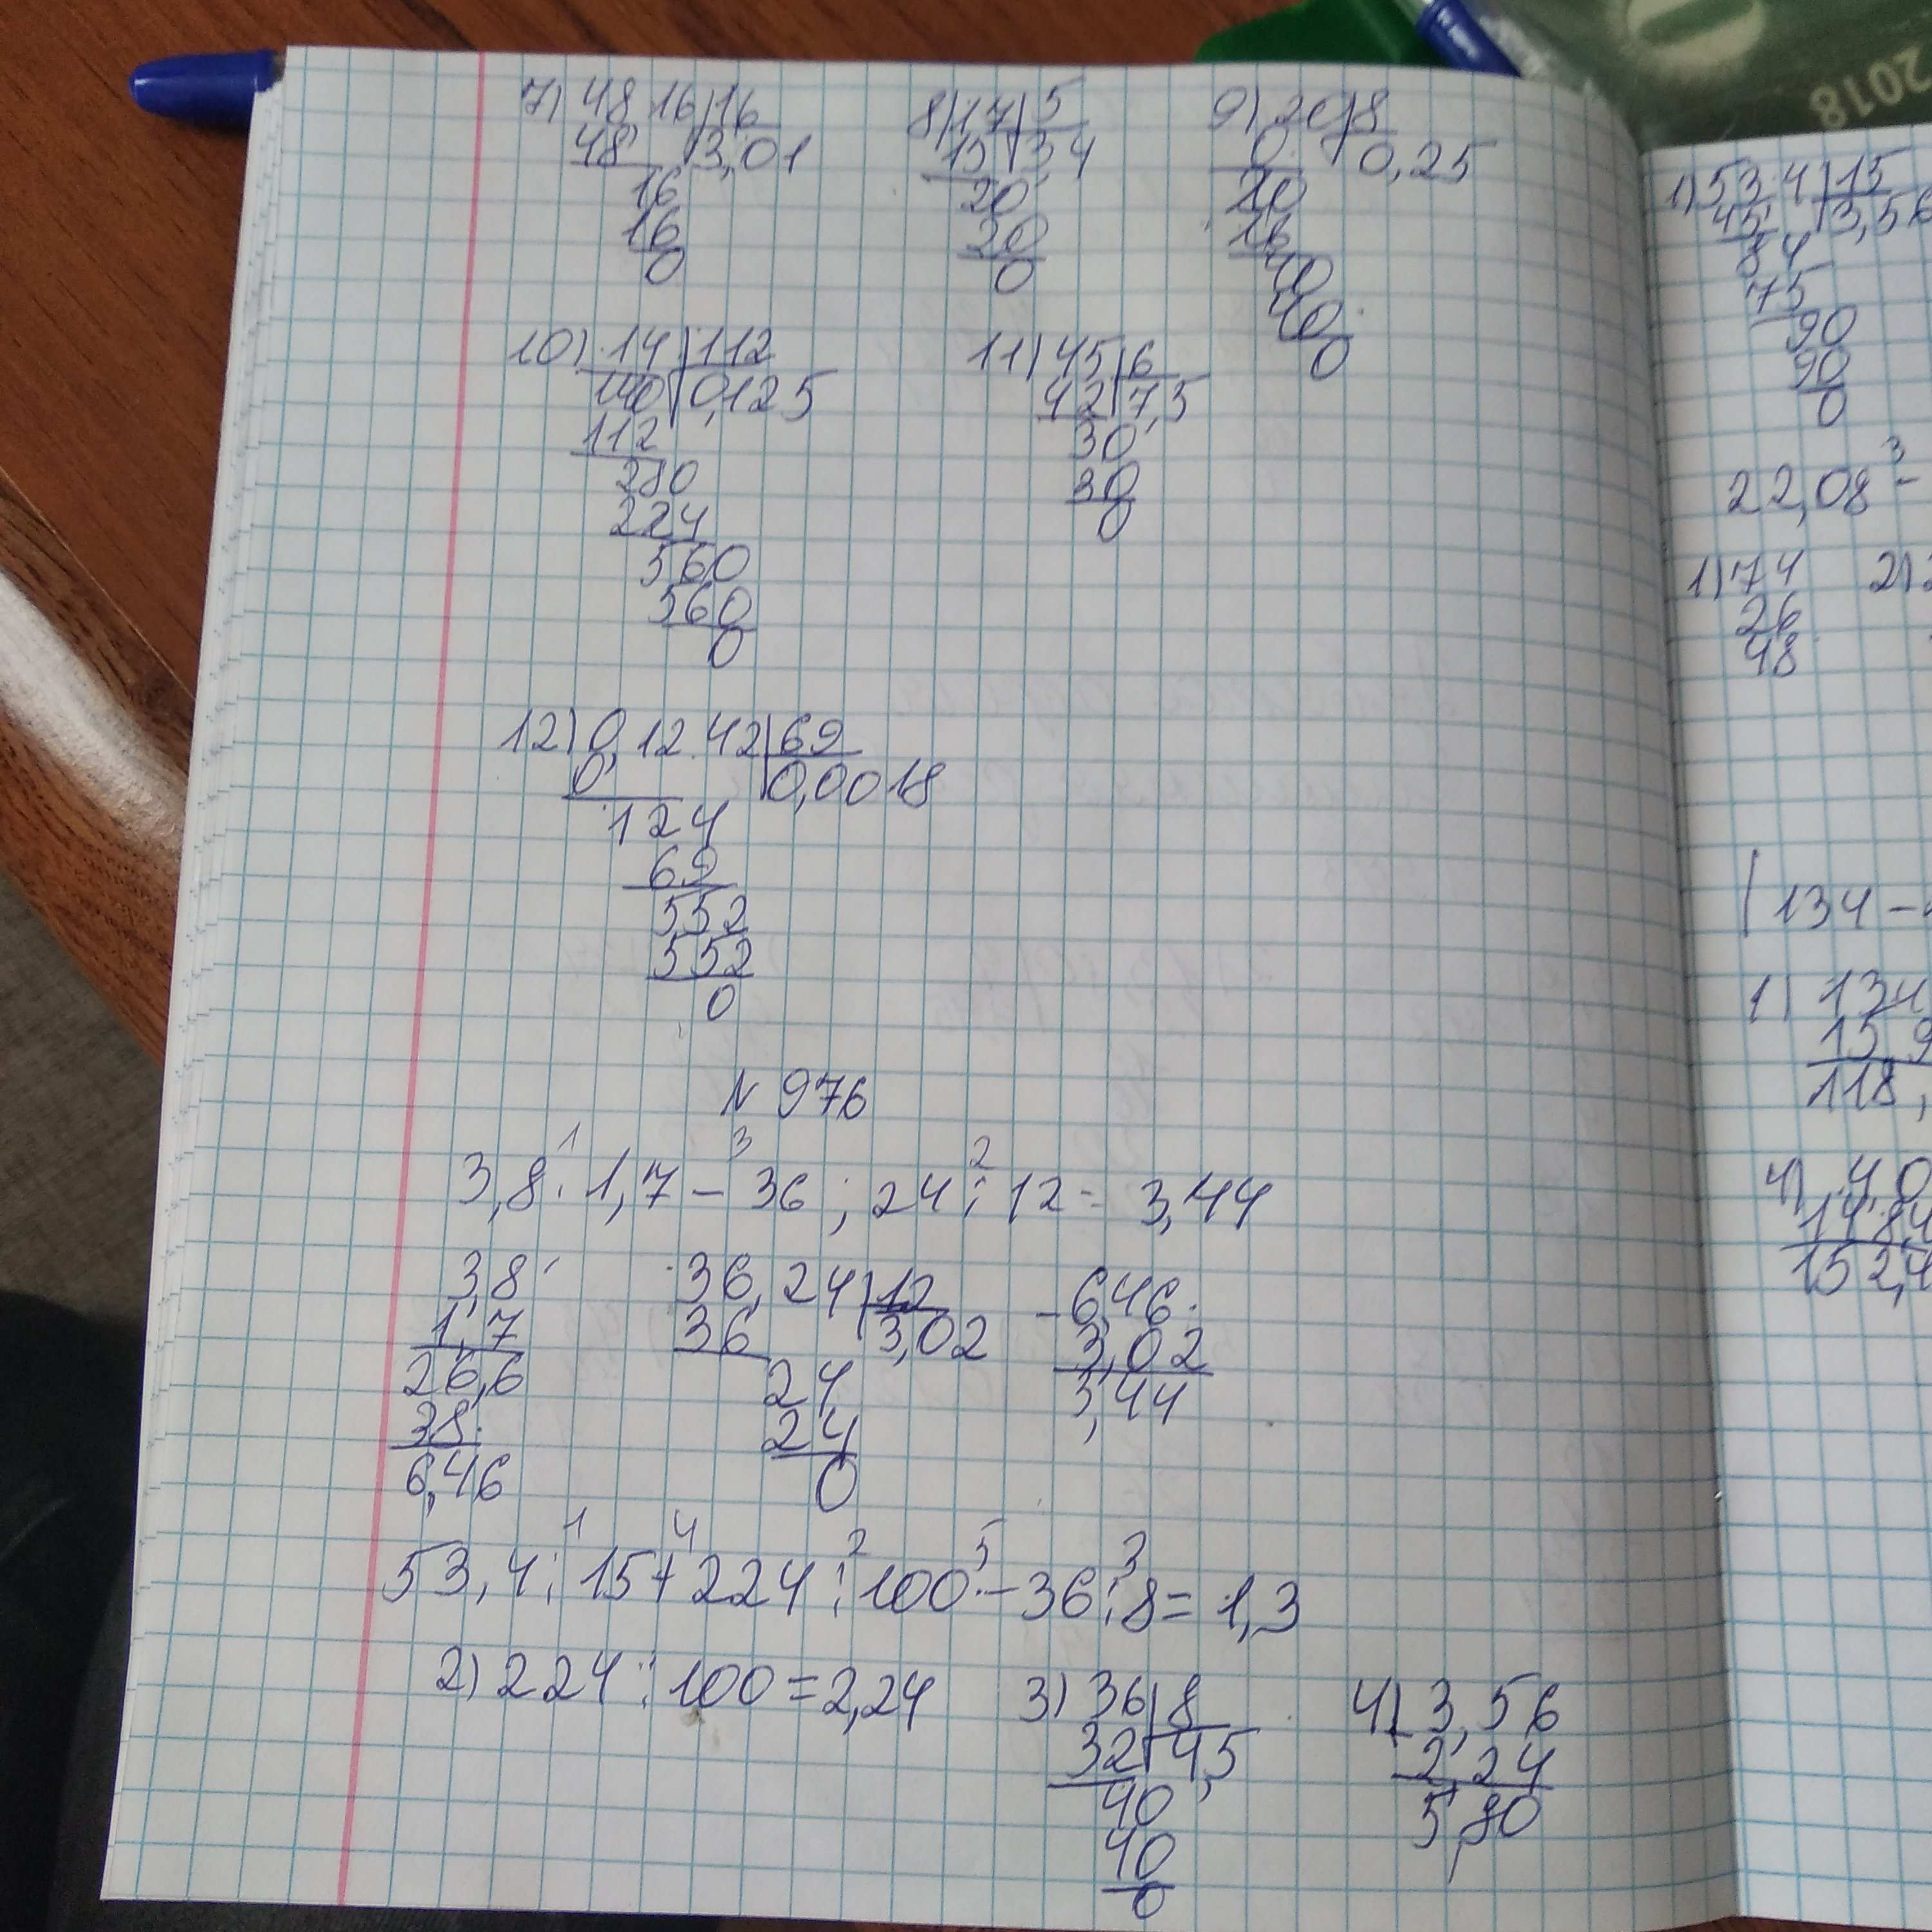 7) 48 16 16 8) 17 5 9) 20 8
48 3,01 15 3,4 0 0,25
16 20 20
16 20 16
0 0 40
40
0
10) 14 112 11) 45 6
140 0,125 42 7,5
112 30
280 30
224 0
560
560
0
12) 0,12 42 69
0 0,0018
124
69
552
552
0
N 976
1 3 2
3,8 · 1,7 - 36 ; 24 : 12 = 3,44
3,8 36,24 12 - 6,46
1,7 36 3,02 3,02
26,6 24 3,44
38 24
6,46 0
1 4 2 5 3
53,4 : 15 + 224 : 100 - 36 : 8 = 1,3
2) 224 : 100 = 2,24 3) 36 8 4) 3,56
32 4,5 2,24
40 5,80
40
0
2018
1) 53 4 15
45 3,56
84
75
90
90
0
3
22,08 -
1) 74 2)
26
48
(134 -
1) 134
15 9
118,
4) 40
14 84
152,4